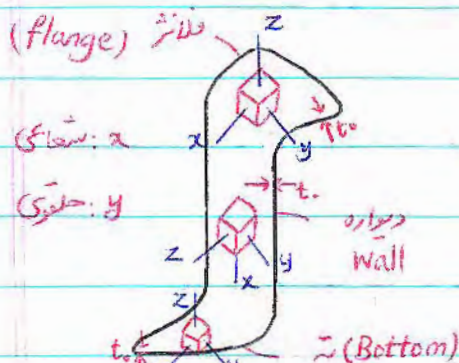 (flange) فلانژ
z
x
y
t₀
x : شعاعی
t₀
y : حلقوی
دیواره
wall
z
x
y
z
t₀
(Bottom)